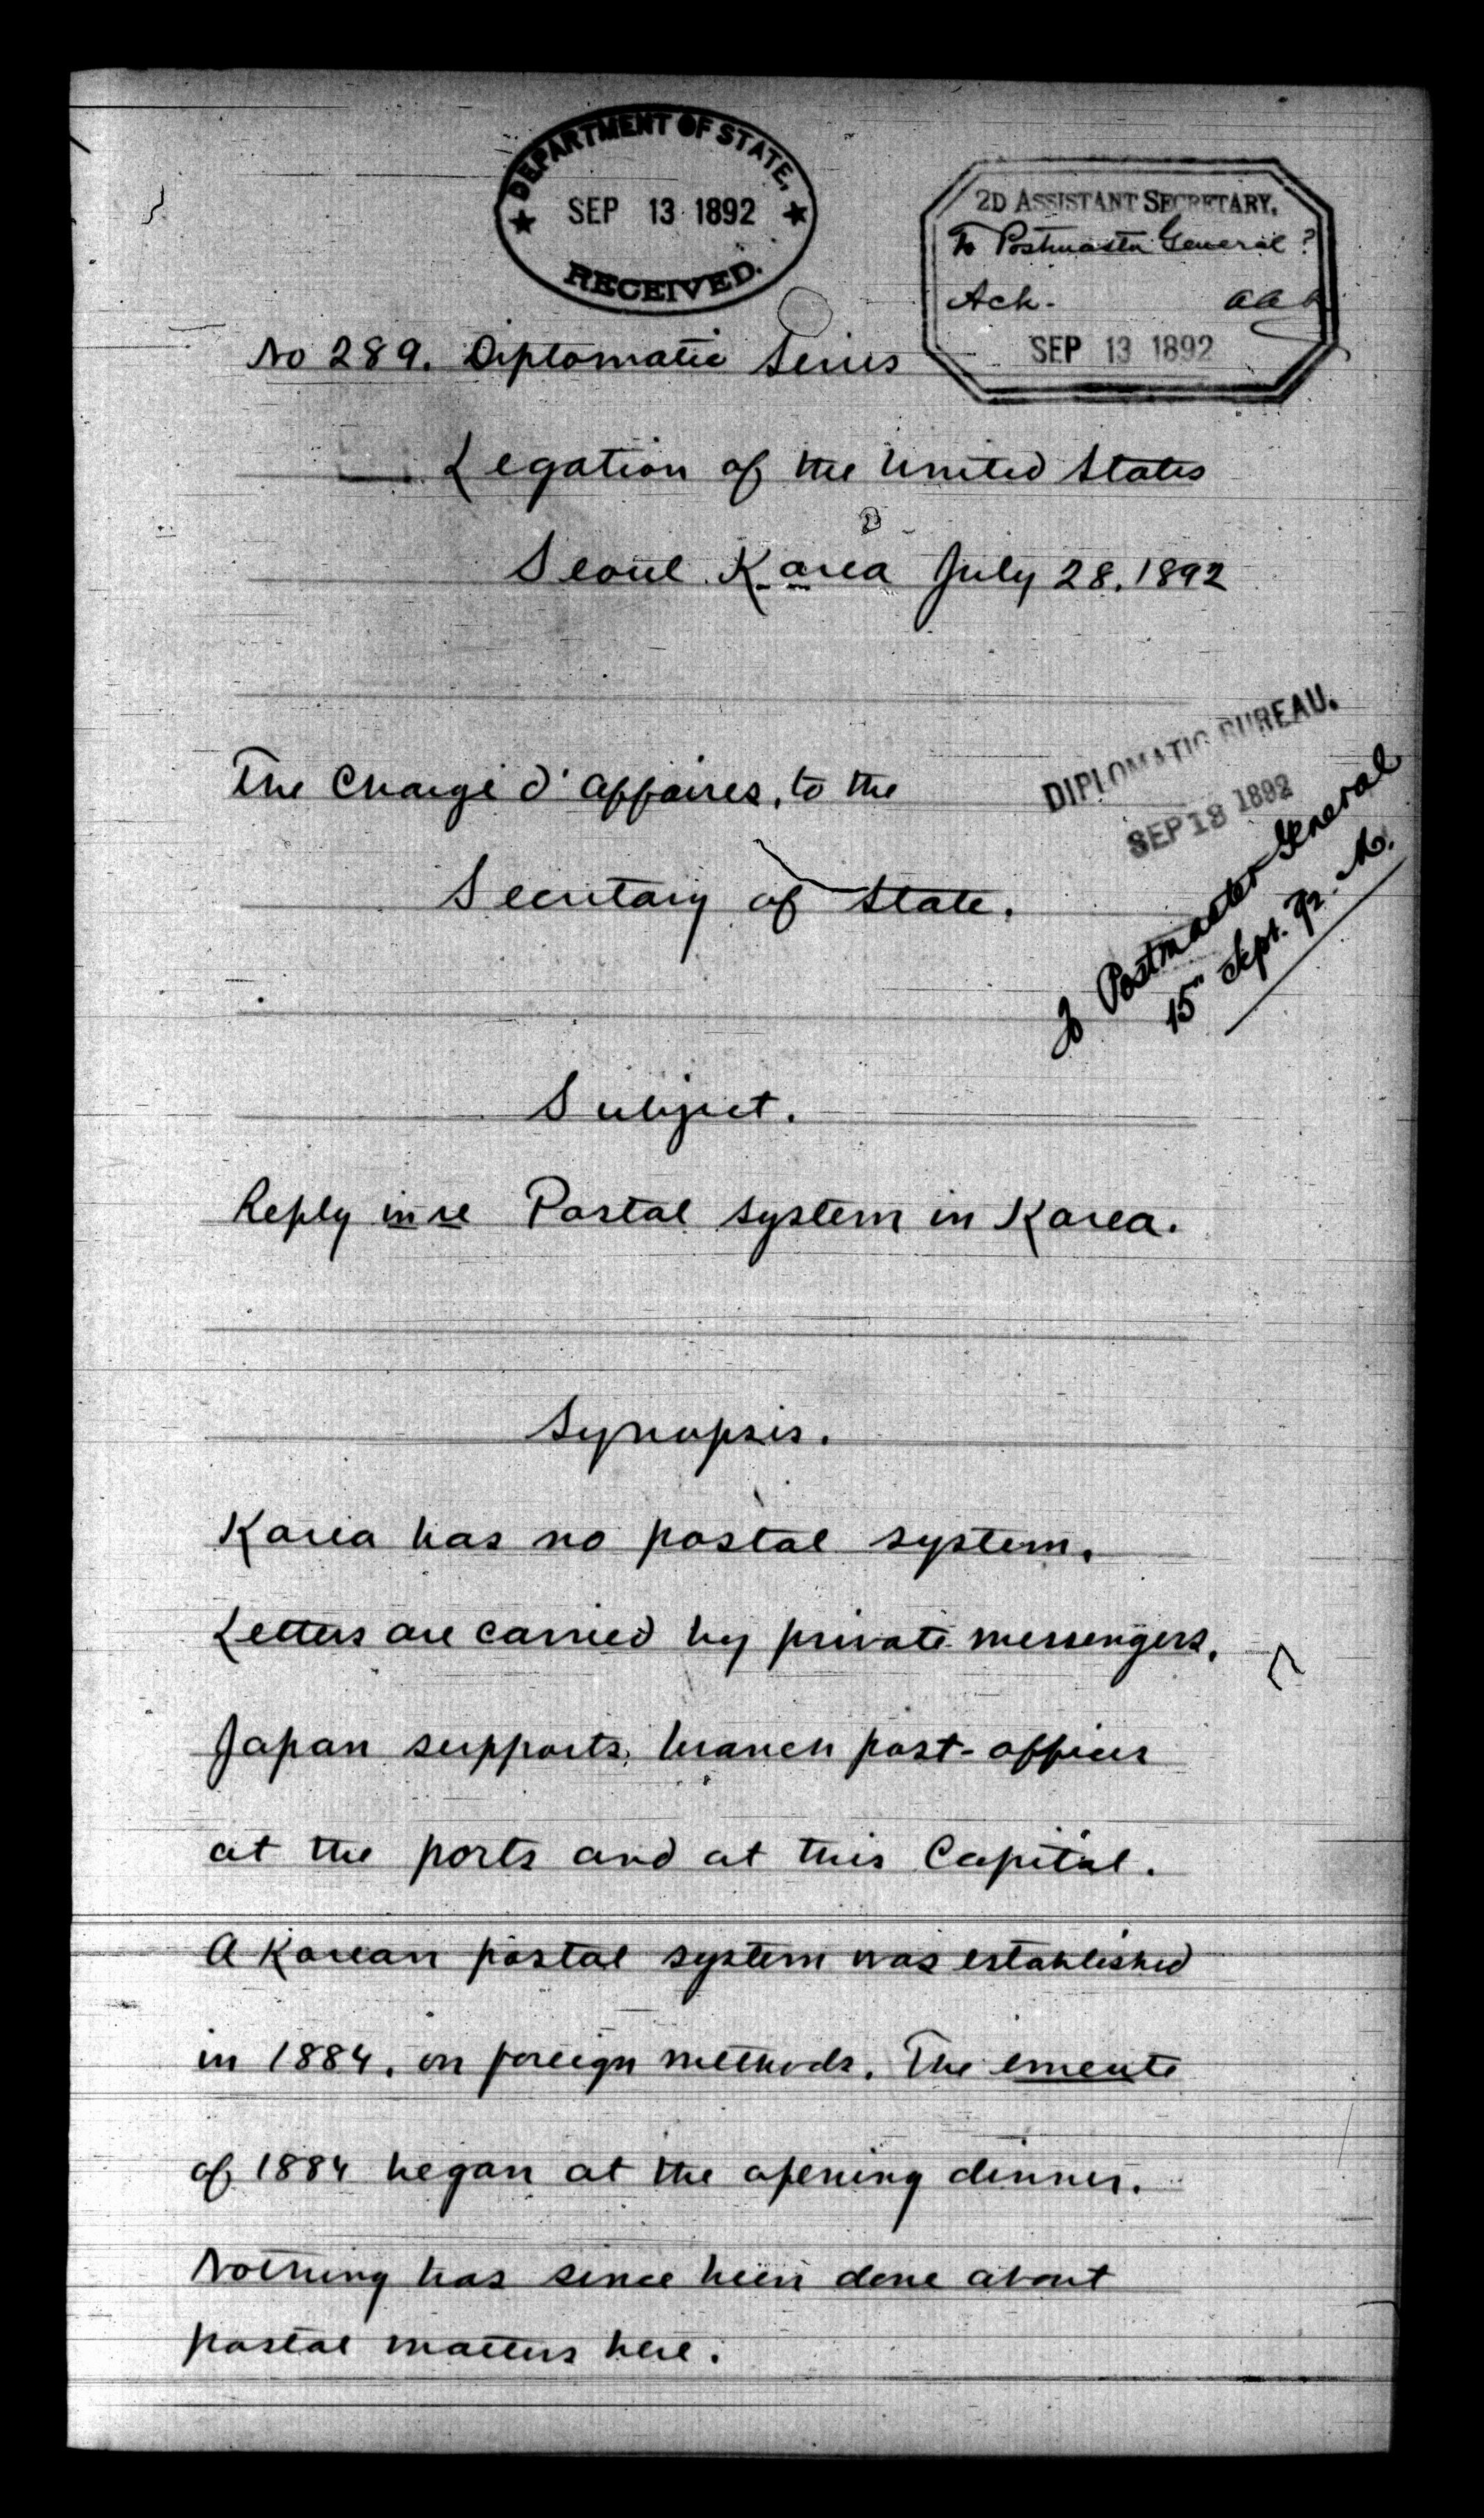 DEPARTMENT OF STATE,
SEP 13 1892
RECEIVED.
2D ASSISTANT SECRETARY.
To Postmaster General?
Ack. AAA
SEP 13 1892
No 289. Diplomatic Series
Legation of the United States
Seoul Korea July 28, 1892
The Chargé d'Affaires, to the
Secretary of State.
DIPLOMATIC BUREAU.
SEP 18 1892
To Postmaster General
15" Sept. 92. M.
Subject.
Reply in re Postal system in Korea.
Synopsis.
Korea has no postal system.
Letters are carried by private messengers.
Japan supports branch post-offices
at the ports and at this Capital.
A Korean postal system was established
in 1884, on foreign methods. The emeute
of 1884 began at the opening dinner.
Nothing has since been done about
postal matters here.